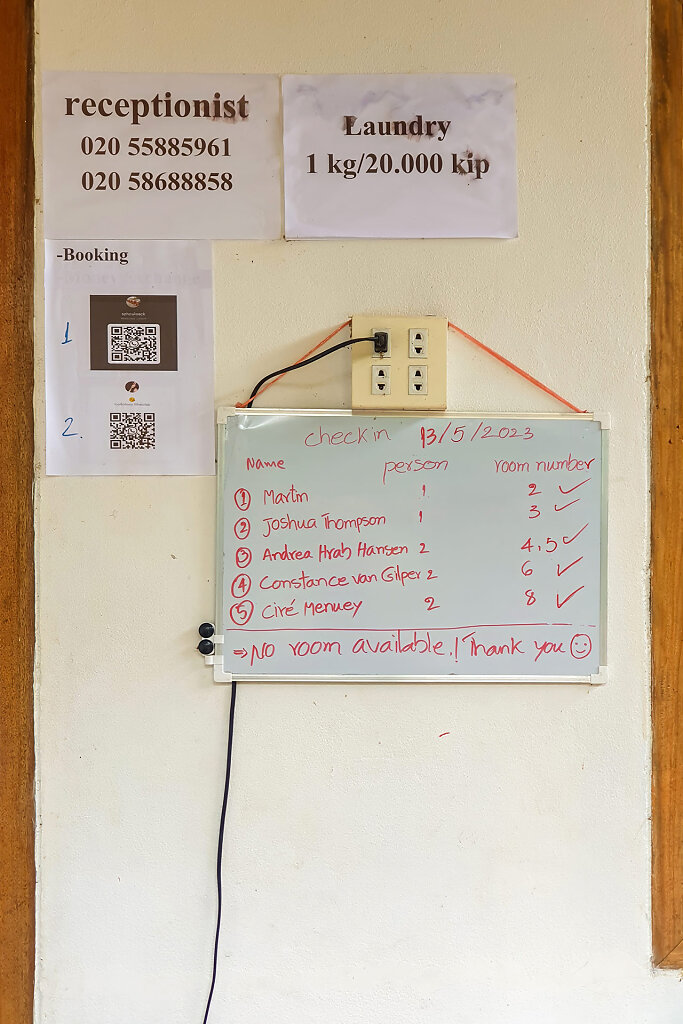 receptionist
020 55885961
020 58688858
Laundry
1 kg/20.000 kip
-Booking
1
2.
checkin 13/5/2023
Name person room number
① Martin 1 2 ✓
② Joshua Thompson 1 3 ✓
③ Andrea Hrab Hansen 2 4,5 ✓
④ Constance van Gilper 2 6 ✓
⑤ Ciré Menuey 2 8 ✓
⇒ No room available.! Thank you ☺